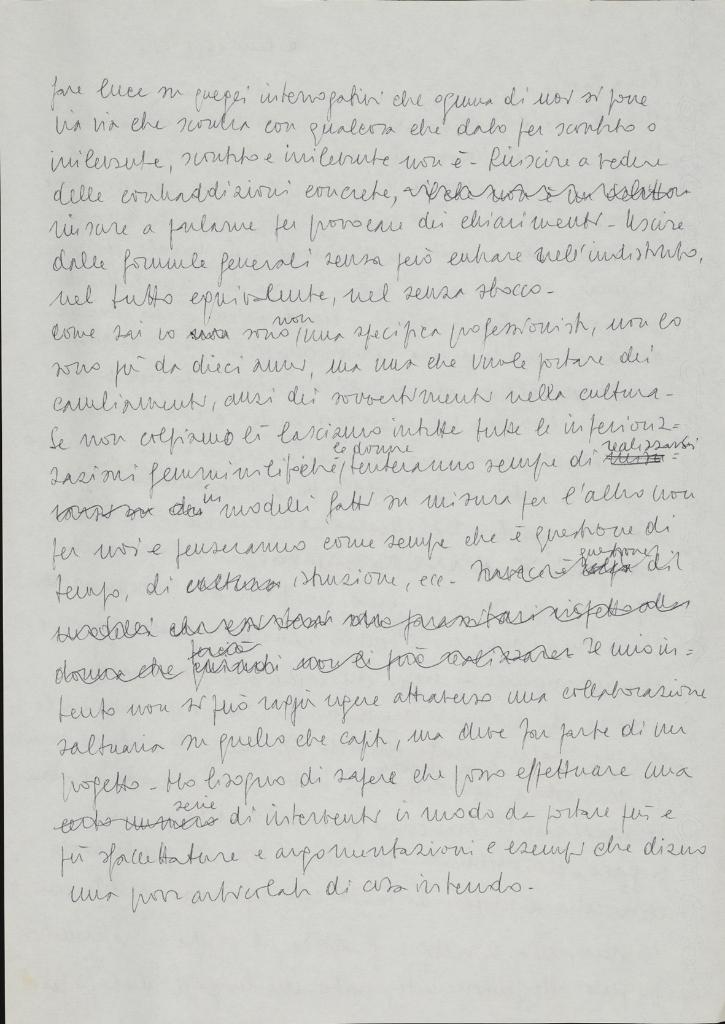 fare luce su quegli interrogativi che ognuna di noi si pone
via via che scontra con qualcosa che dato per scontato o
irrilevante, scontato e irrilevante non è - Riuscire a vedere
delle contraddizioni concrete,
riuscire a parlarne per provocare dei chiarimenti - Uscire
dalle formule generali senza però entrare nell'indistinto,
nel tutto equivalente, nel senza sbocco -
Come sai io sono non una specifica professionista, non lo
sono più da dieci anni, ma una che vuole portare dei
cambiamenti, anzi dei sovvertimenti nella cultura -
Se non colpiamo lì lasciamo intatte tutte le inferioriz=
zazioni femminili perché le donne tenteranno sempre di realizzarsi
in modelli fatti su misura per l'altro non
per noi e penseranno come sempre che è questione di
tempo, di istruzione, ecc - questione di
Il mio in=
tento non si può raggiungere attraverso una collaborazione
saltuaria su quello che capita, ma deve far parte di un
progetto - Ho bisogno di sapere che posso effettuare una
serie di interventi in modo da portare più e
più sfaccettature e argomentazioni e esempi che diano
una prova articolata di cosa intendo -